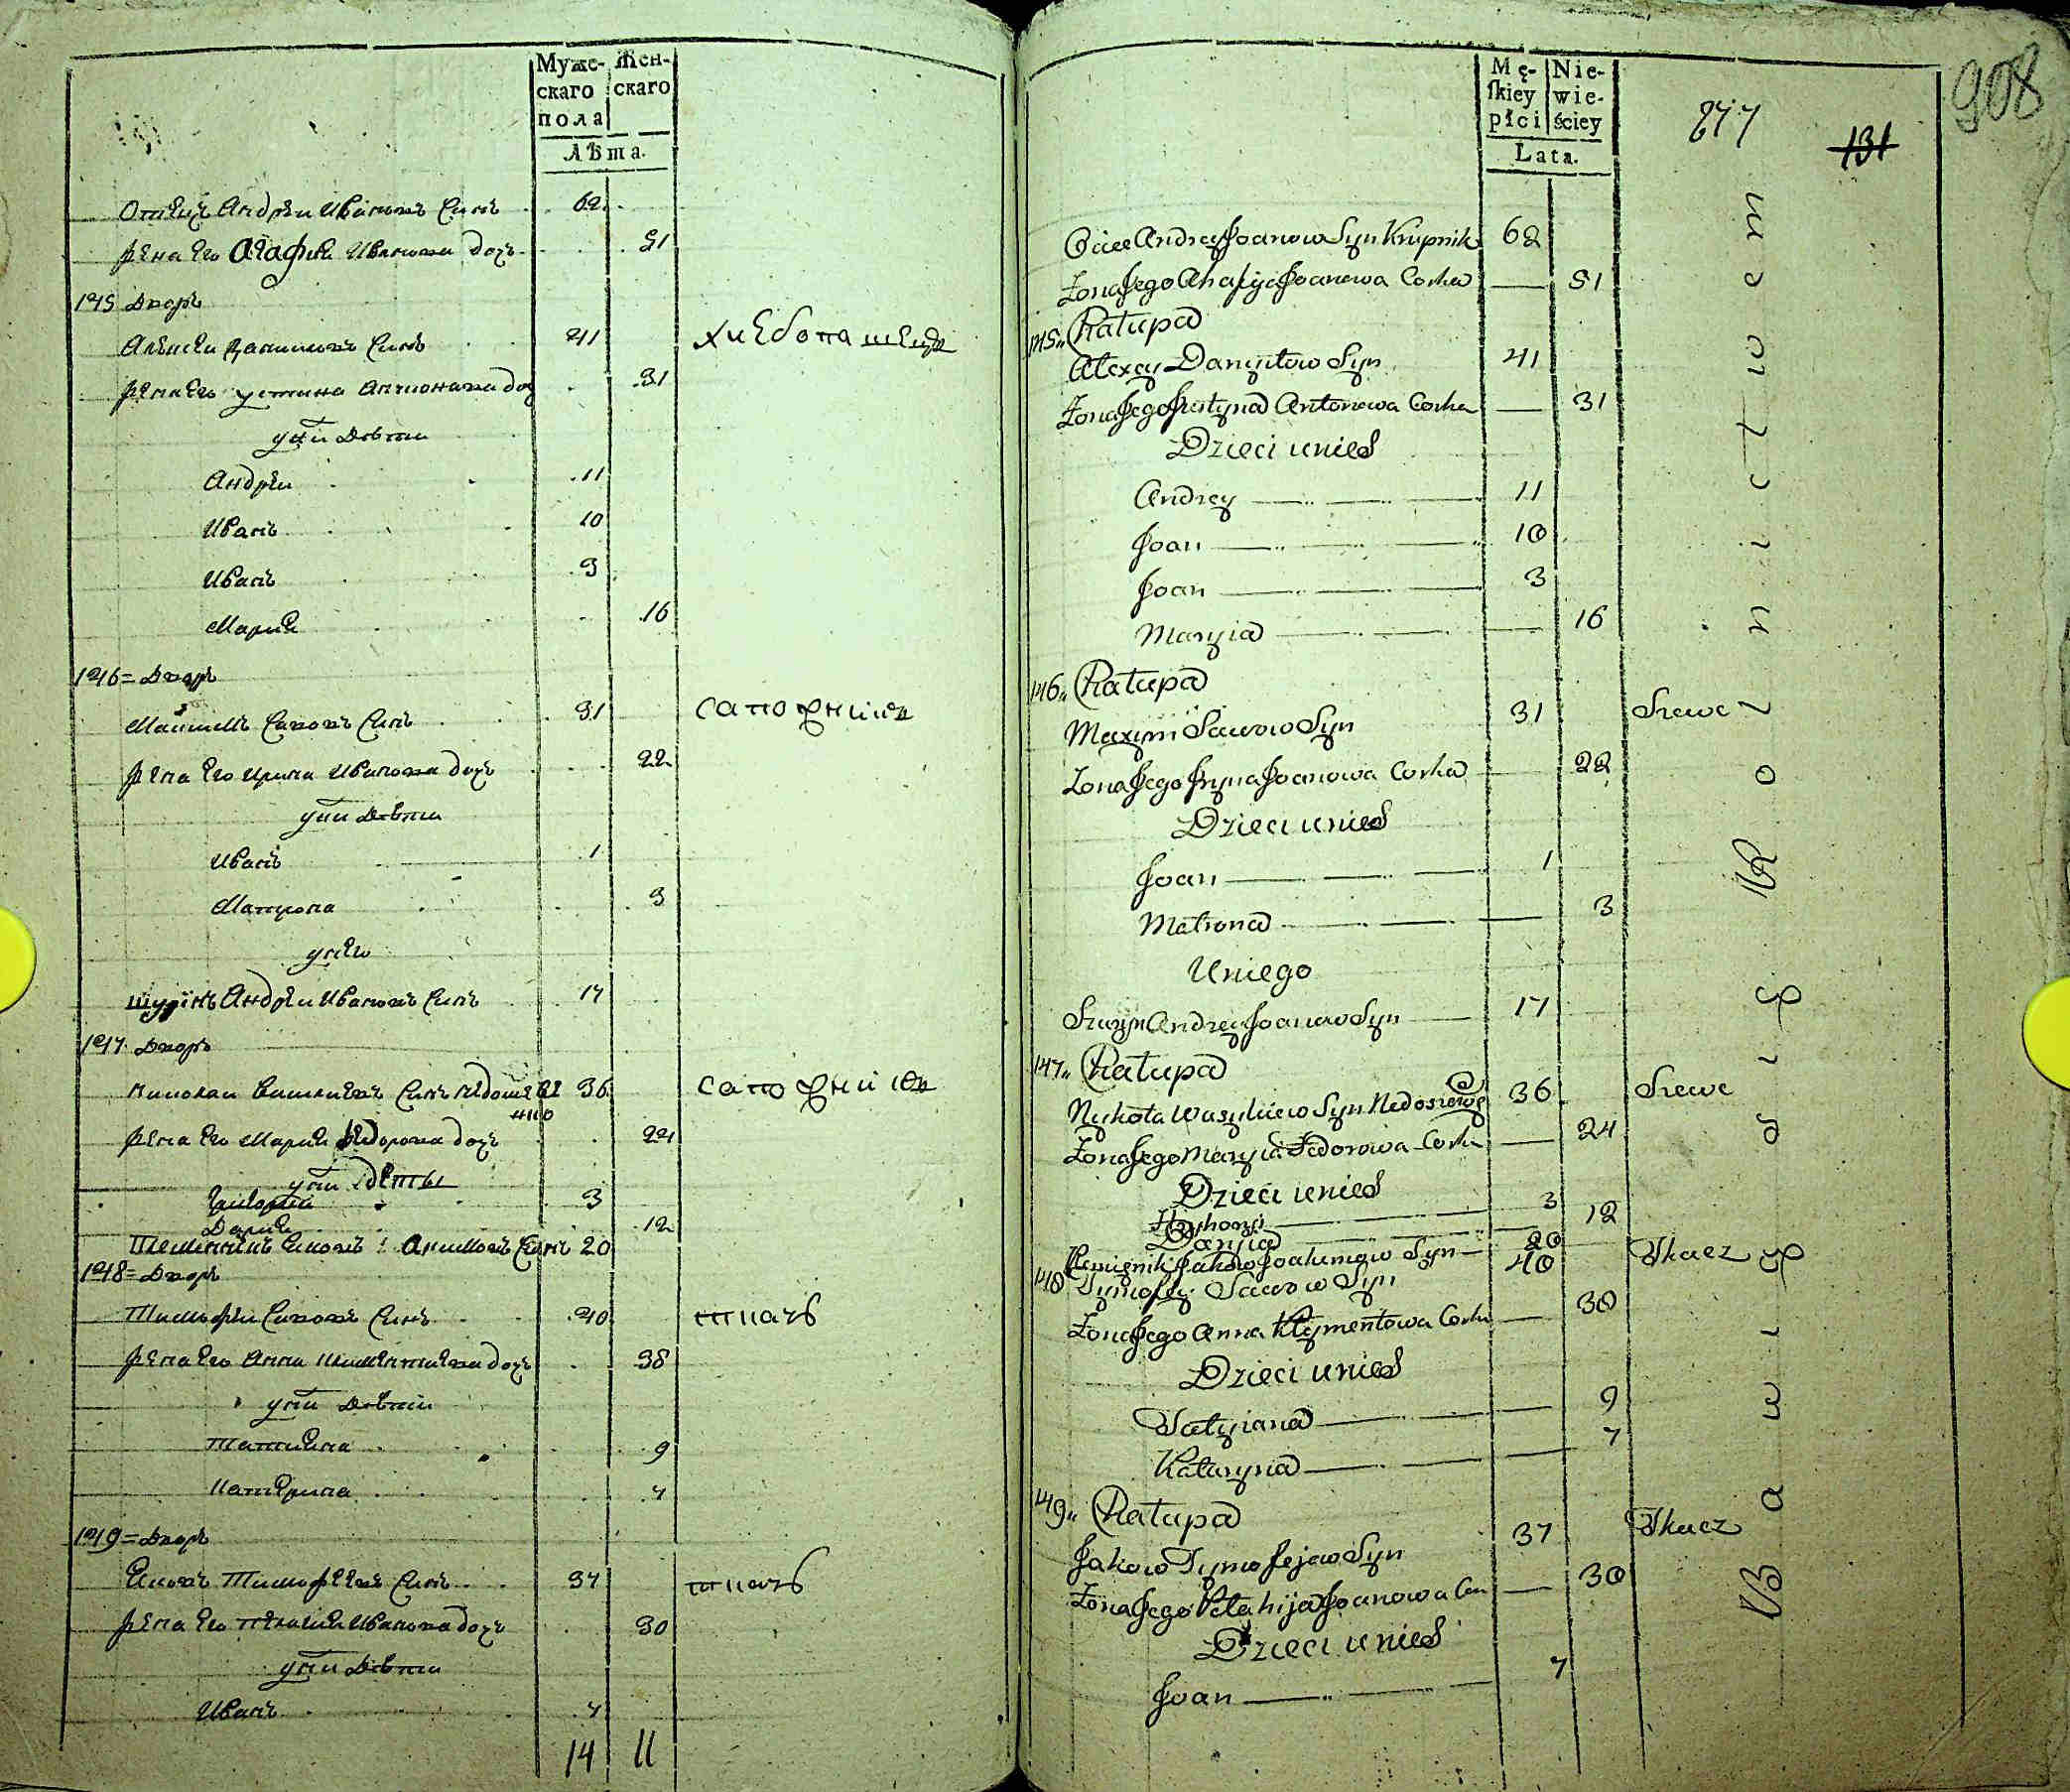 Муже-
скаго
пола
Жен-
скаго
Лѣта.
Отецъ Андрѣи Ивановъ Синъ 62
Жена Его Агафиа Иванова дочь 51
145 Дворъ
Алѣксѣи Даниловъ Синъ 41 хлѣбопашецъ
Жена Его устина Антонова доч 31
у них Дѣти
Андрѣи 11
Иванъ 10
Иванъ 3
Мариа 16
146 = Дворъ
Маѯимъ Савовъ Синъ 31 сапожникъ
Жена Его Ирина Иванова дочь 22
у них Дѣти
Иванъ 1
Матрона 3
у него
шуринъ Андрѣи Ивановъ Синъ 17
147 Дворъ
Николаи Василиевъ Синъ 36 сапожникъ
Жена Его Мариа Федорова дочь 24
у них дѣты
Григории 3
Дариа 12
Племянникъ Яковъ Акимовъ Синъ 20
148 = Дворъ
Тимофѣи Савовъ Синъ 40 ткачь
Жена Его Анна Климентиева дочь 38
у них Дѣти
Татиана 9
Катерина 7
149 = Дворъ
Яковъ Тимофѣевъ Синъ 37 ткачь
Жена Его Пелагиа Иванова дочь 30
у них Дѣти
Иванъ 7
14 11
908
Mę-
ſkiey
płci
Nie-
wie-
ściey
Lata.
877
131
Oćiec Andrey Joanow Syn Krupnik 62
Żona Jego Ahafija Joanowa Corka 51
145„ Chałupa
Alexey Danyłow Syn 41
Żona Jego Justyna Antonowa Corka 31
Dzieci unich
Andrey 11
Joan 10
Joan 3
Maryia 16
146„ Chałupa
Maxym Sawow Syn 31 Szewc
Żona Jego Iryna Joanowa Corka 22
Dzieci unich
Joan 1
Matrona 3
Uniego
Szuryn Andrey Joanow Syn 17
147„ Chałupa
Nykoła Wasyliiew Syn 36 Szewc
Żona Jego Maryia Fedorowa Corka 24
Dzieci unich
Hryhory 3
Daryia 12
Plemięnik Jakow Joakimow Syn 20 Tkacz
148 Tymofey Sawow Syn 40
Żona Jego Anna Klymentowa Corka 38
Dzieci unich
Tatyiana 9
Kataryna 7
149„ Chałupa
Jakow Tymofejew Syn 37 Tkacz
Żona Jego Pelahija Joanowa Cor 30
Dzieci unich
Joan 7
Bawią się Rolnictwem